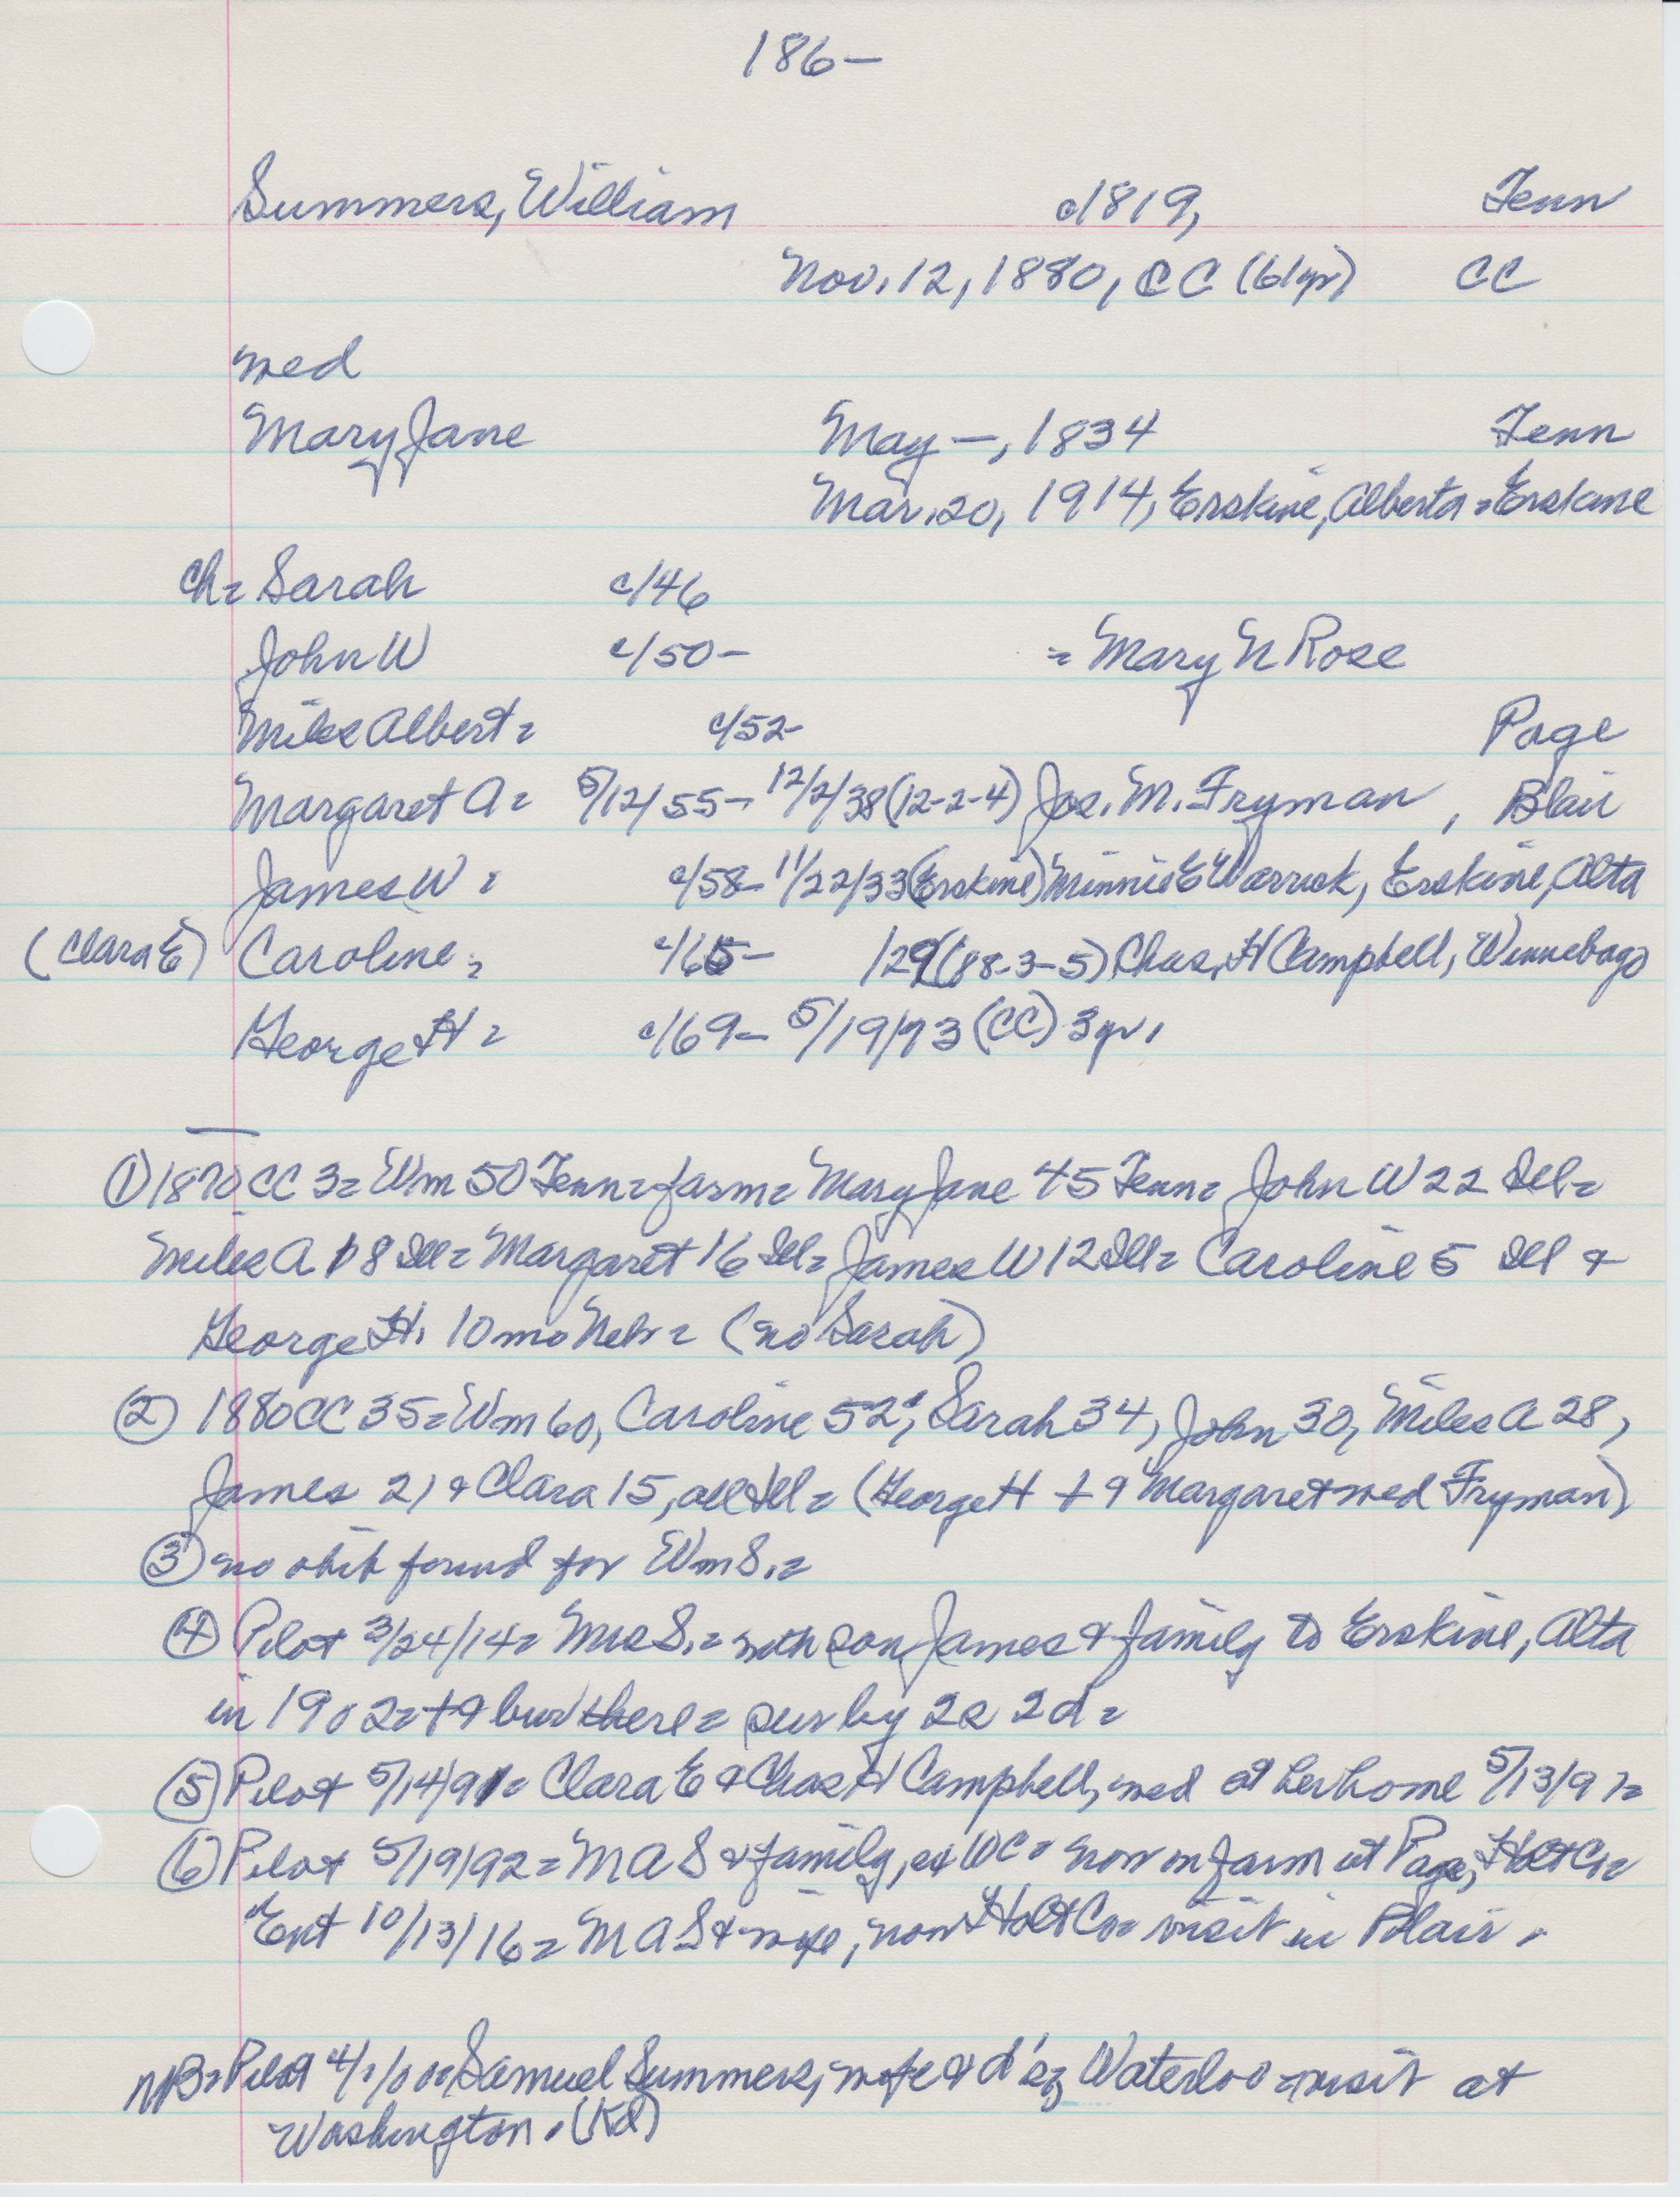 186—
Summers, William c1819, Tenn
Nov. 12, 1880, CC (61yr) CC
med
Mary Jane May —, 1834 Tenn
Mar. 20, 1914, Erskine, Alberta = Erskine
ch= Sarah c/46
John W c/50— = Mary N Rose
Miles Albert = c/52—
Page
Margaret A = 5/12/55— 12/2/38 (12-2-4) Jos. M. Fryman, Blair
James W = c/58— 11/22/33 (Erskine) Minnie E Warrick, Erskine, Alta
(Clara E) Caroline = c/65— /29 (88-3-5) Chas. H Campbell, Winnebago
George H = c/69— 5/19/73 (CC) 3yr.
① 1870 CC 3= Wm 50 Tenn= farm= Mary Jane 45 Tenn= John W 22 Ill=
Miles A 18 Ill= Margaret 16 Ill= James W 12 Ill= Caroline 5 Ill &
George H. 10 mo Nebr= (no Sarah)
② 1880 CC 35= Wm 60, Caroline 52?, Sarah 34, John 30, Miles A 28,
James 21 & Clara 15, all Ill= (George H + & Margaret med Fryman)
③ no obit found for Wm S.=
④ Pilot 3/24/14= Mrs S.= with son James & family to Erskine, Alta
in 1902= + & bur there= sur by 2s 2d=
⑤ Pilot 5/14/91= Clara E & Chas H Campbell, med at her home 5/13/91=
⑥ Pilot 5/19/92= M A S & family, ex WC= now on farm at Page, Holt Co=
Ent 10/13/16= M A S & wife, now Holt Co= visit in Blair.
NB= Pilot Samuel Summers, wife & d's, Waterloo = visit at
Washington. (Kd)